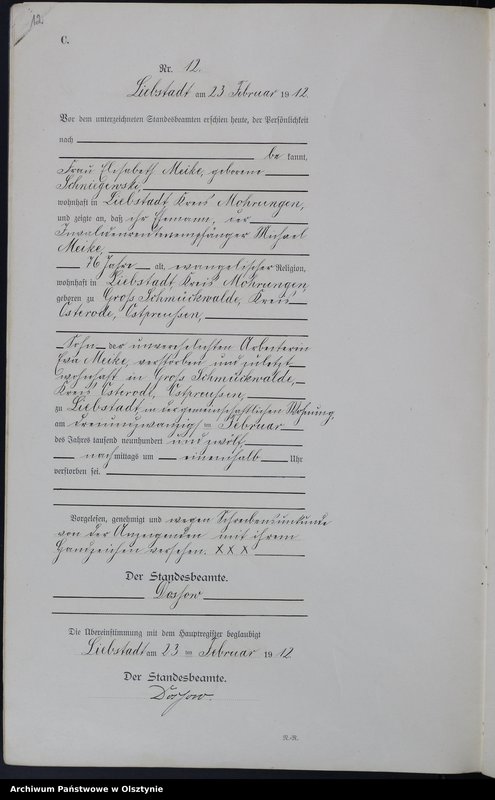 12.
C.
Nr. 12.
Liebstadt am 23 Februar 1912.
Vor dem unterzeichneten Standesbeamten erschien heute, der Persönlichkeit
nach
be kannt,
Frau Elisabeth Meike, geborene
Schniegewski,
wohnhaft in Liebstadt Kreis Mohrungen,
und zeigte an, daß ihr Ehemann, der
Invalidenrentenempfänger Michael
Meike,
76 Jahre alt, evangelischer Religion,
wohnhaft in Liebstadt, Kreis Mohrungen,
geboren zu Groß Schmückwalde, Kreis
Osterode, Ostpreußen,
Sohn der unverehelichten Arbeiterin
Eva Meike, verstorben und zuletzt
wohnhaft in Groß Schmückwalde,
Kreis Osterode, Ostpreußen,
zu Liebstadt in der gemeinschaftlichen Wohnung,
am dreiundzwanzigsten Februar
des Jahres tausend neunhundert und zwölf
nach mittags um eineinhalb Uhr
verstorben sei.
Vorgelesen, genehmigt und wegen Schreibensunkunde
von der Anzeigenden mit ihrem
Handzeichen versehen. X X X
Der Standesbeamte.
Die Übereinstimmung mit dem Hauptregister beglaubigt
Liebstadt am 23 ten Februar 1912
Der Standesbeamte.
Archiwum Państwowe w Olsztynie